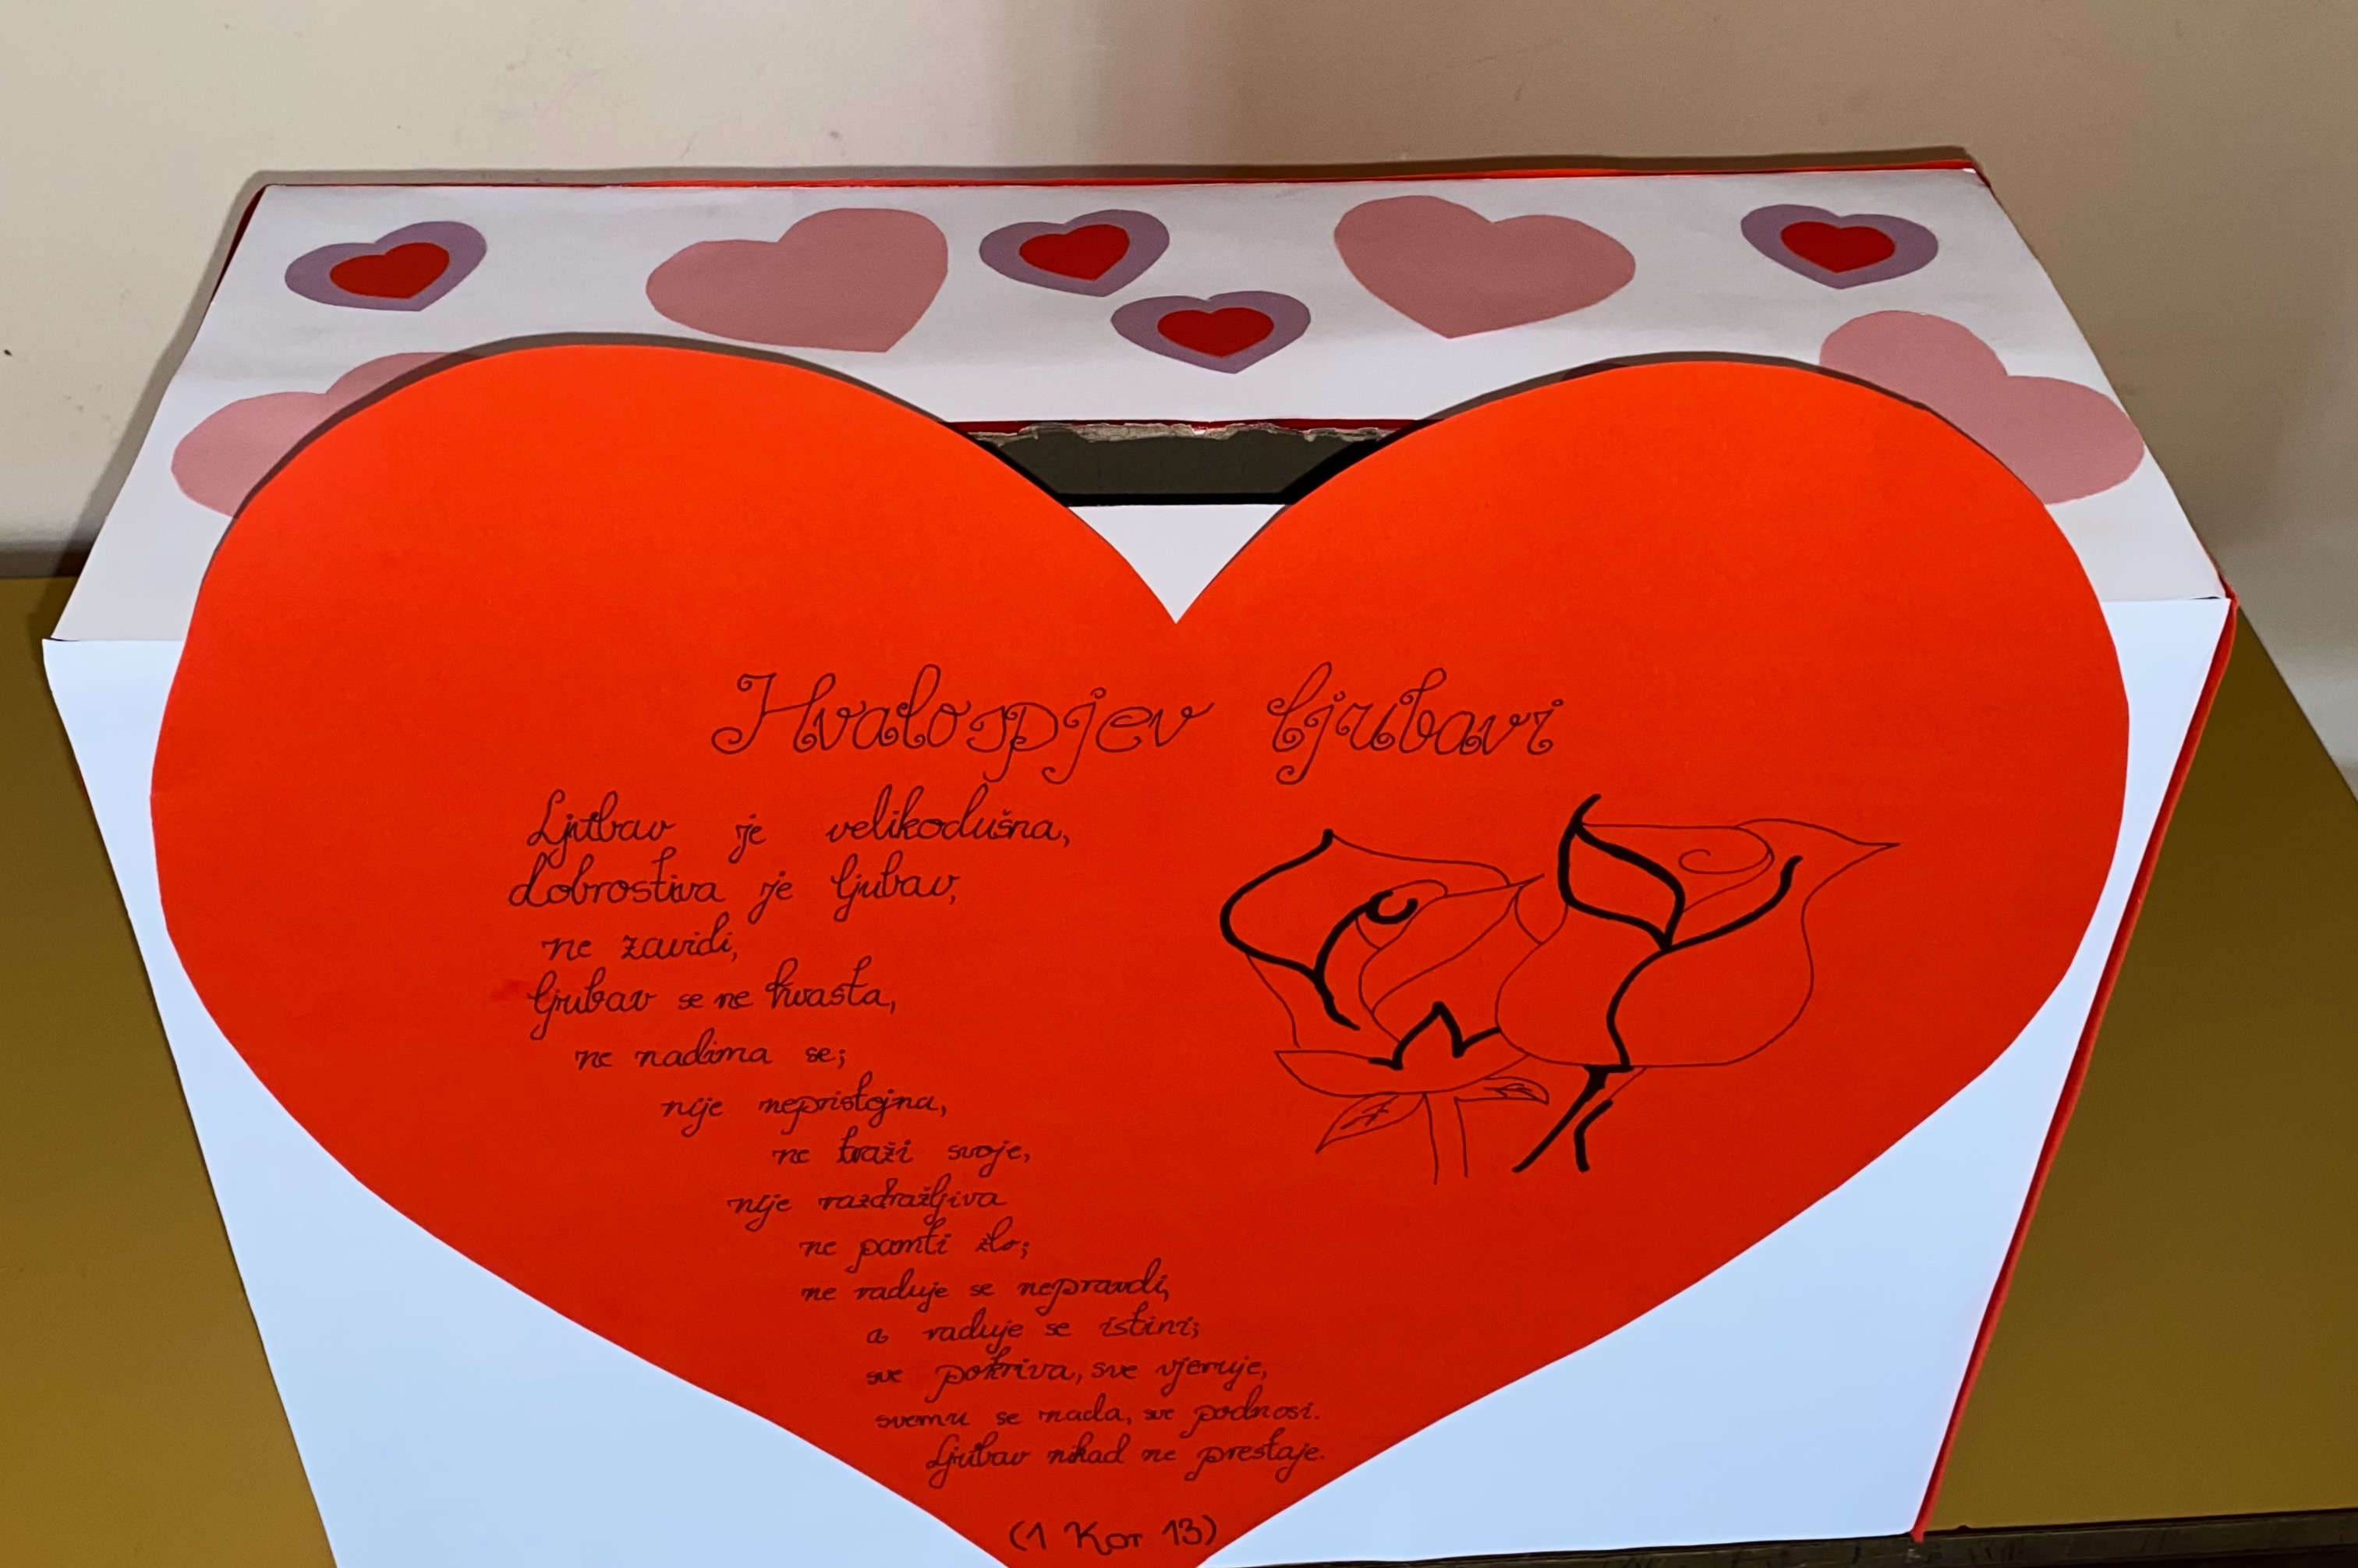 Hvalospjev ljubavi
Ljubav je velikodušna,
dobrostiva je ljubav,
ne zavidi,
ljubav se ne hvasta,
ne nadima se;
nije nepristojna,
ne traži svoje,
nije razdražljiva
ne pamti zlo;
ne raduje se nepravdi,
a raduje se istini;
sve pokriva, sve vjeruje,
svemu se nada, sve podnosi.
Ljubav nikad ne prestaje.
(1 Kor 13)